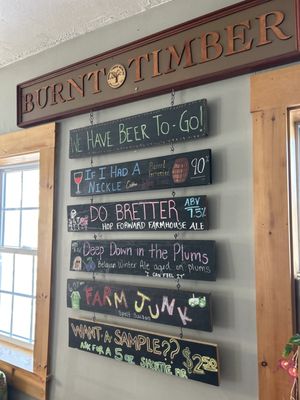 BURNT TIMBER
WE HAVE BEER TO-GO!
IF I HAD A
NICKLE
Barrel
9%
DO BRETTER
ABV
7.3%
HOP FORWARD FARMHOUSE ALE
DEEP DOWN IN THE PLUMS
Belgian Winter Ale aged on plums
FARM JUNK
WANT A SAMPLE??
ASK FOR A 5 OZ. SHORTIE FOR
$2.50